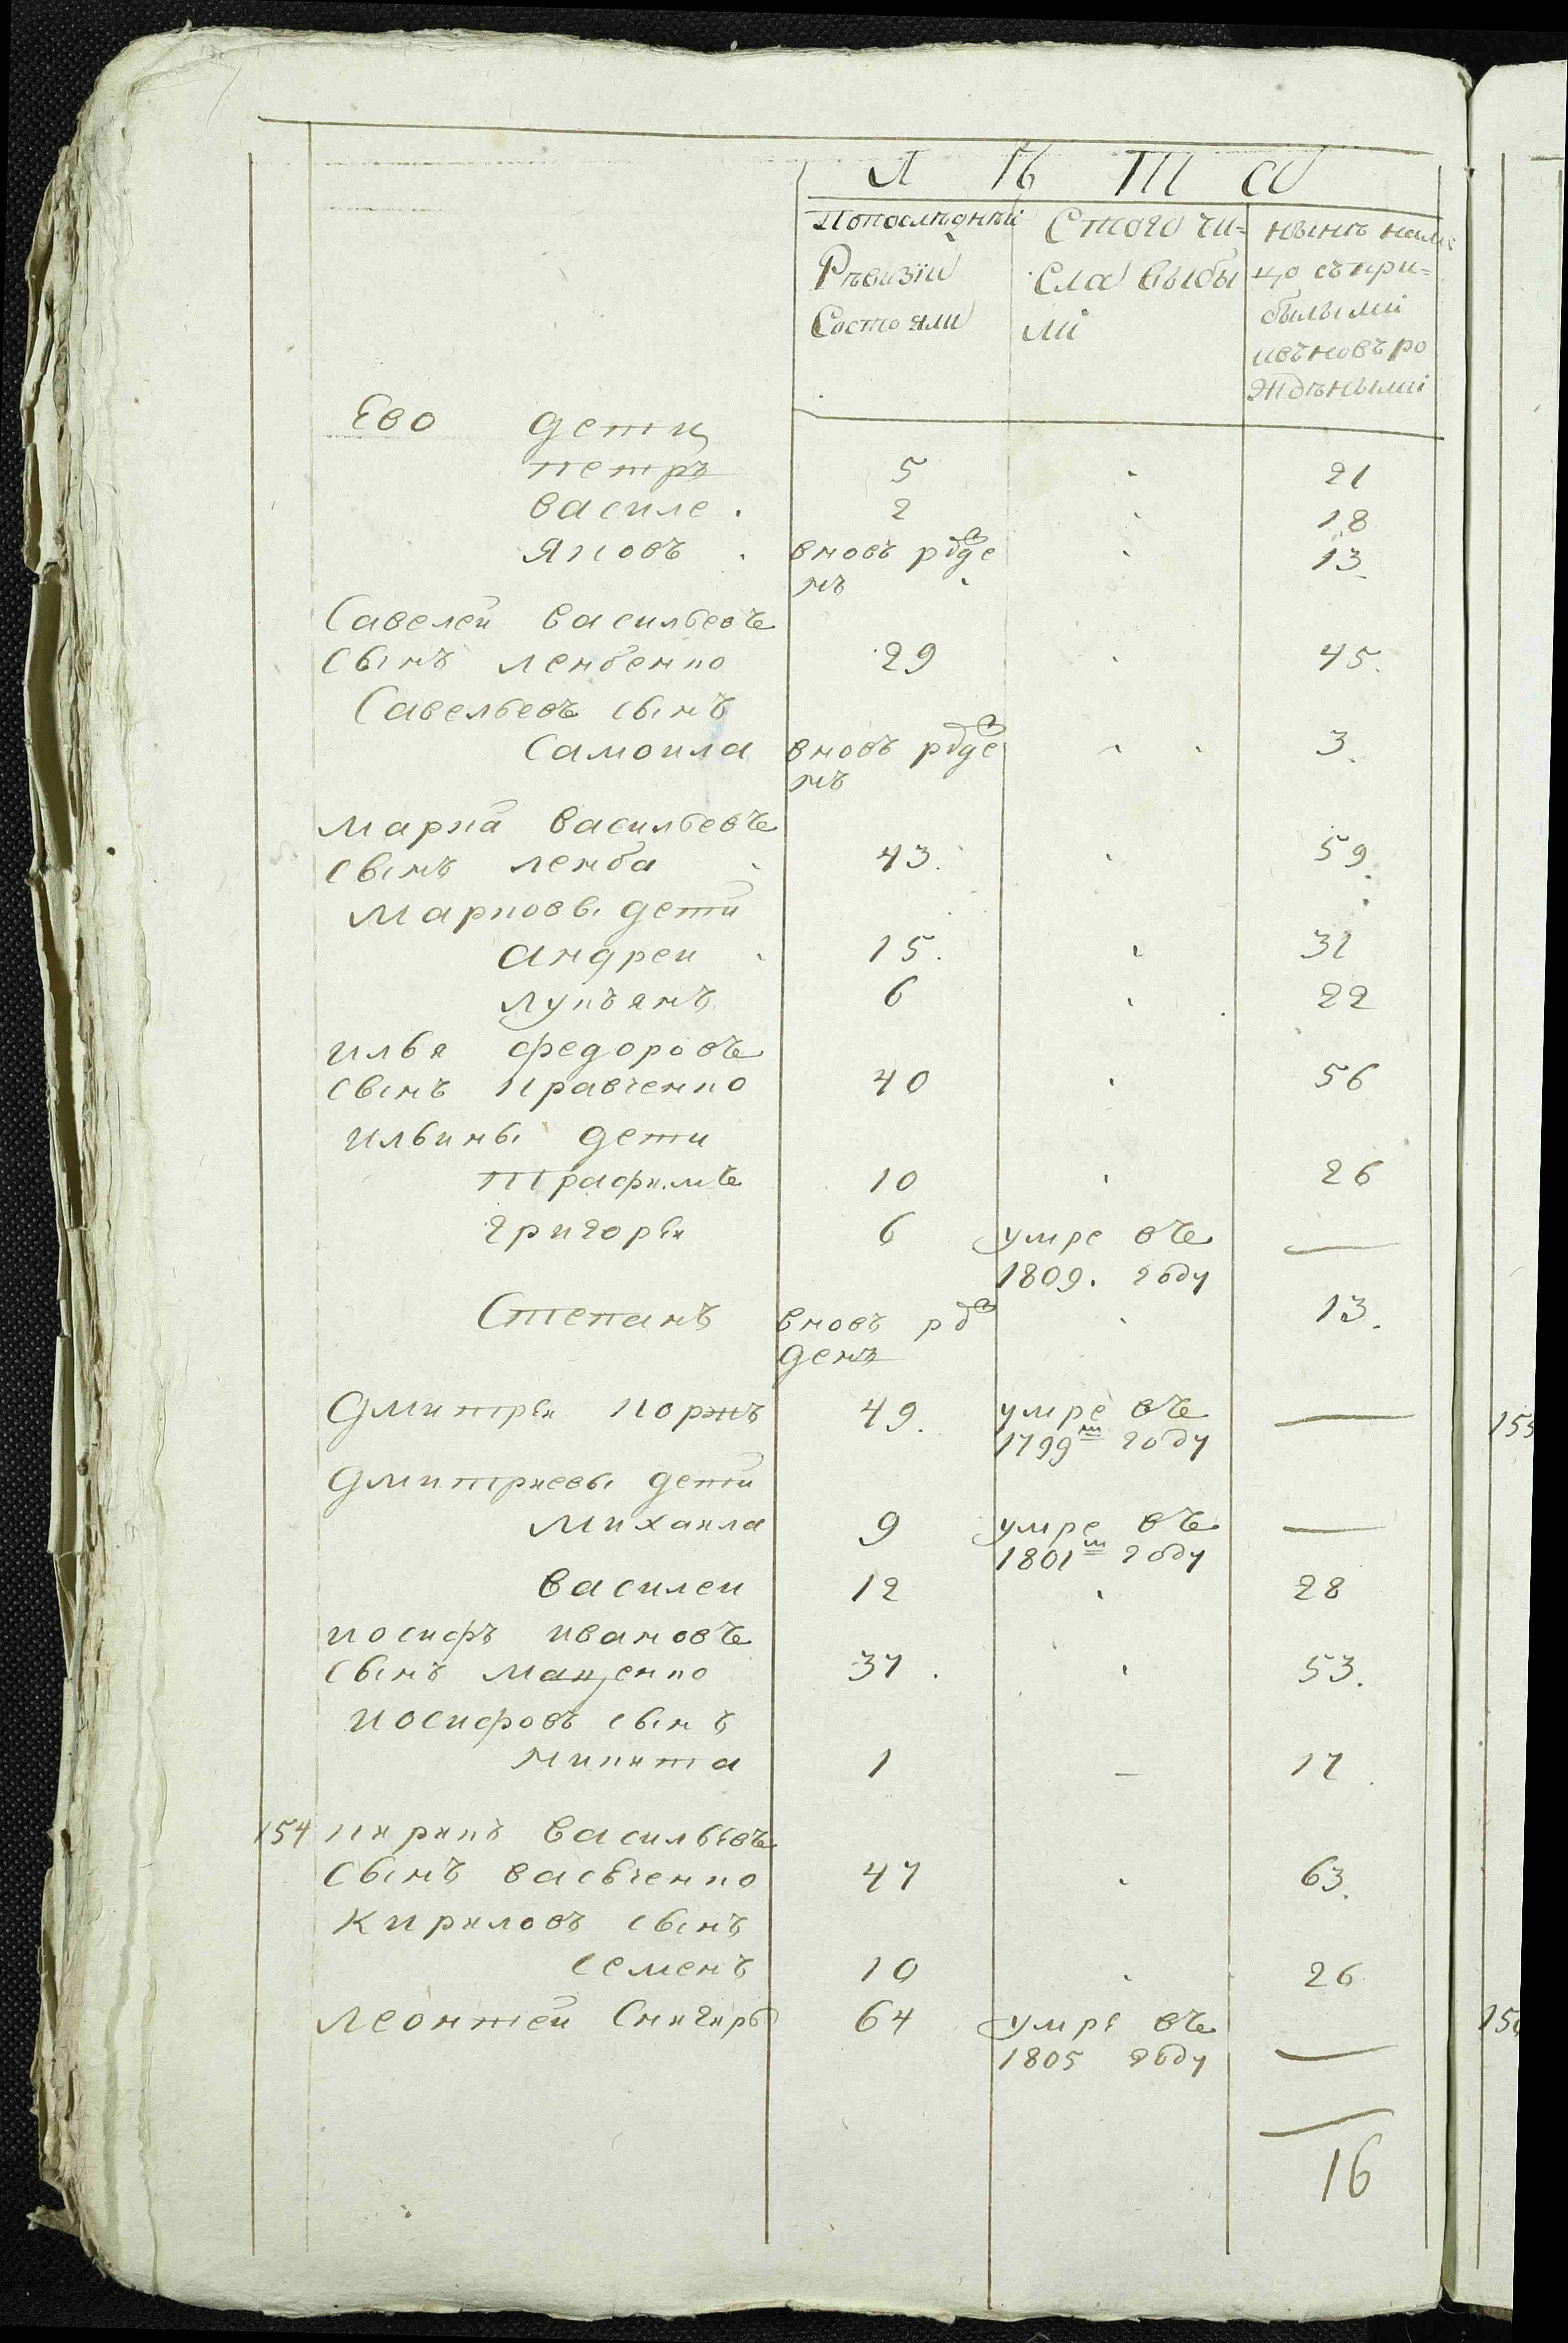 Л Ѣ Т А
Попослѣдней Стого чи= нынѣ нали
Рѣвизiи сла выбы цо съпри=
Состояли ли былыми
ивъновъро
ждѣными
Ево дети
петръ 5 21
василе 2 18
яковъ вновь рожде 13
нъ
Савелей васильевъ
сынъ ленбенко 29 45
Савельевъ сынъ
Самоила вновь рожде 3
нъ
марка васильевъ
сынъ лемба 43 59
Марковы дети
андреи 15 31
лукъянъ 6 22
илья федоровъ
сынъ кравченко 40 56
ильины дети
Трафимъ 10 26
григорьи 6 умре въ —
1809. году
Степанъ вновь рож 13
денъ
дмитрьи коржъ 49 умре въ —
1799м году
дмитриевы дети
михаила 9 умре въ —
1801м году
василеи 12 28
иосифъ ивановъ
сынъ маценко 37 53
иосифовъ сынъ
никита 1 — 17
154 кирикъ васильевъ
сынъ васьченко 47 63
кириловъ сынъ
семенъ 10 26
леонтей снигиръ 64 умре въ
1805 году —
16